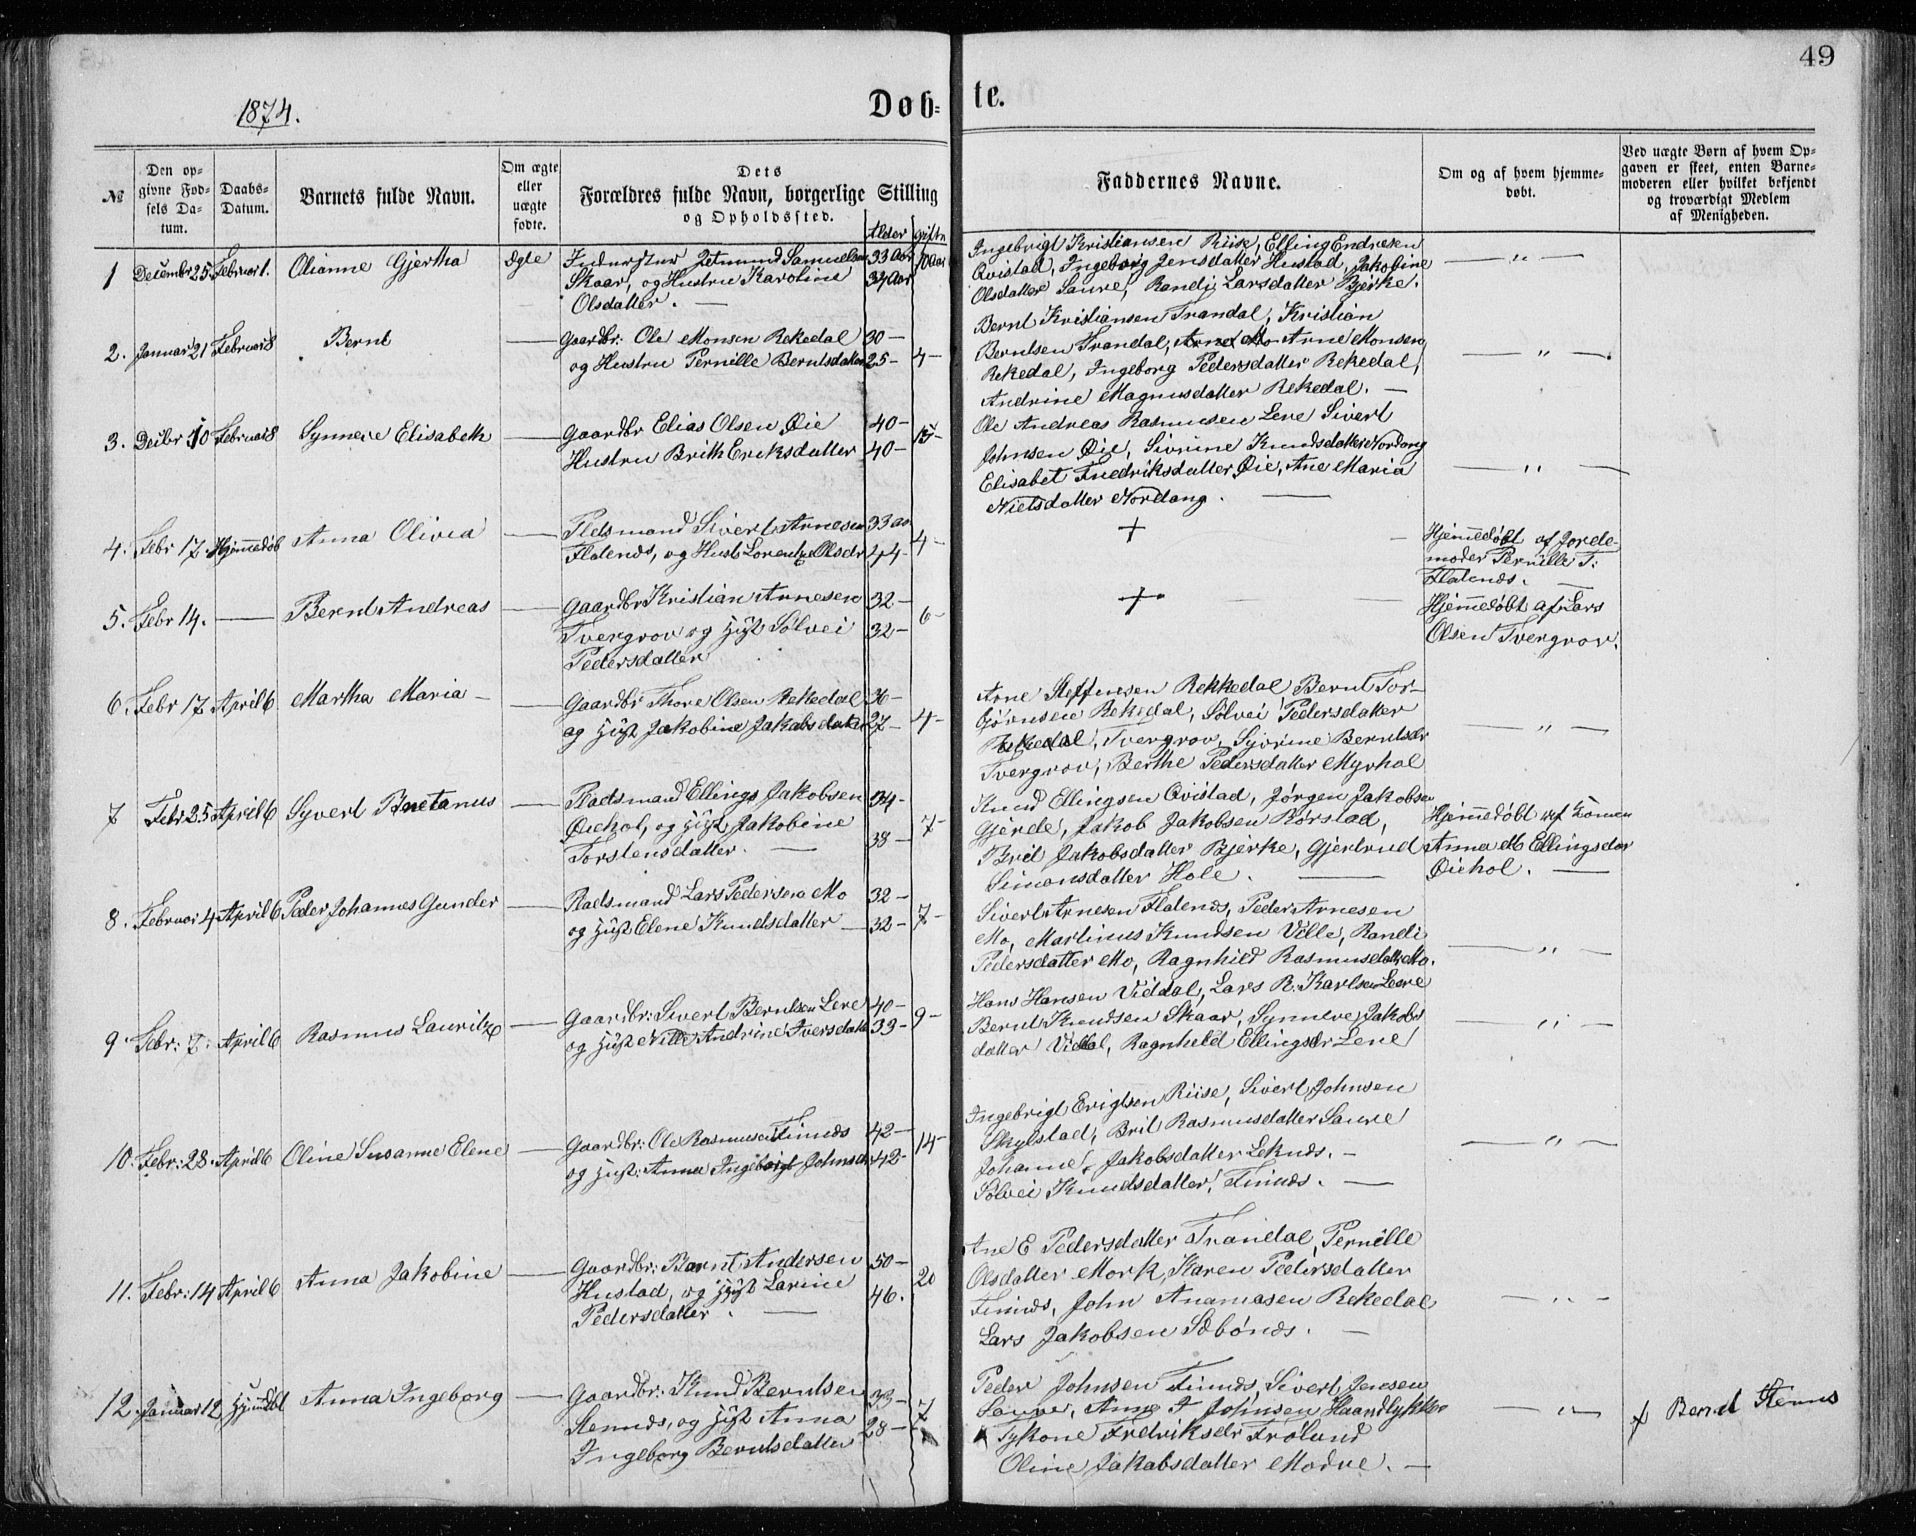 49
1874.
Døb-
te.
№
Den op-
givne Fød-
sels Da-
tum.
Daabs-
Datum.
Barnets fulde Navn.
Om ægte
eller
uægte
fødte.
Dets
Forældres fulde Navn, borgerlige Stilling
og Opholdssted.
Alder
gifte
Faddernes Navne.
Om og af hvem hjemme-
døbt.
Ved uægte Børn af hvem Op-
gaven er skeet, enten Barne-
moderen eller hvilket bekjendt
og troværdigt Medlem
af Menigheden.
1 Decembr 25 Februar 1. Olianne Gjertha ægte Inderster Jetmund Samuelsen 33 Aar 10 Aar
Skaar, og Hustru Karoline 34 Aar
Olsdatter. —
Ingebrigt Kristiansen Riise, Elling Endresen
Qvistad, Ingeborg Jensdatter Hustad, Jakobine
Olsdatter Saure, Randi Larsdatter Bjerke.
— " —
2. Januar 21 Februar 8 Bernt Gaardbr: Ole Monsen Rekedal 30 —
og Hustru Pernille Berntsdatter 25 — 4 —
Bernt Kristiansen Trandal, Kristian
Berntsen Trandal, Arne Mo Arne Monsen
Rekedal, Ingeborg Pedersdatter Rekedal,
Andrine Magnusdatter Rekedal. —
— " —
3. Decbr 10 Februar 8 Synneve Elisabeth — Gaardbr Elias Olsen Øie 40 — 15 —
Hustru Brith Eriksdatter 40 —
Ole Andreas Rasmussen Leve Sivert
Johnsen Øie, Sivrine Knudsdatter Nordang
Elisabet Fredriksdatter Øie, Ane Maria
Nielsdatter Nordang. —
— " —
4. Febr 17. Hjemmedøb Anna Olivia — Pladsmand Sivert Arnesen 33 aa
Flatenæs, og Hust Lorentze Olsdr 44 — 4 —
+
Hjemmedøbt af Jorde-
moder Pernille T.
Flatenæs.
5. Febr 14. — Bernt Andreas — Gaardbr Kristian Arnesen 32 —
Tvergrov og Hust Sølvei 32 — 6 —
Pedersdatter
+
Hjemmedøbt af Lars
Olsen Tvergrov.
6. Febr 17 April 6 Martha Maria — Gaardbr Thore Olsen Rekedal 36 —
og Hust Jakobine Jakobsdatter 27 — 4 —
Arne Steffensen Rekkedal Bernt Tor-
bjørnsen Rekedal, Sølvei Pedersdatter
Rekedal, Tvergrov, Syvrine Berntsdr
Tvergrov, Berthe Pedersdatter Myrhol
— " —
7 Febr 25 April 6 Syvert — Pladsmand Ellings Jakobsen 34 —
Øiehol, og Hust Jakobine 38 — 7 —
Torstensdatter. —
Knud Ellingsen Qvistad, Jørgen Jakobsen
Gjerde, Jakob Jakobsen Rørstad,
Brit Jakobsdatter Bjerke, Gjertrud
Simonsdatter Hole. —
Hjemmedøbt af Konen
Anna M Ellingsdtr
Øiehol. —
8. Februar 4 April 6 Peder Johannes Gunder — Pladsmand Lars Pedersen Mo 32 —
og Hust Elene Knudsdatter — 32 — 7 —
Sivert Arnesen Flatenæs, Peder Arnesen
Mo, Martinus Knudsen Ville, Randi
Pedersdatter Mo, Ragnhild Rasmusdatter Mo.
— " —
9. Febr: 7. April 6 Rasmus Lauritz — Gaardbr: Sivert Berntsen Leve 40 —
og Hust Nille Andrine Iversdatt 33 — 9 —
Hans Hansen Viddal, Lars R. Karlsen Leve
Bernt Knudsen Skaar, Synneve Jakobs
datter Viddal, Ragnhild Ellingsdr Leve
— " —
10. Febr: 28. April 6 Oline Susanne Elene — Gaardbr: Ole Rasmusen Finnæs 42 — 14 —
og Hust: Anna Ingeborg Johnsdr 42 —
Ingebrigt Erigtsen Riise, Sivert Johnsen
Skylstad, Brit Rasmusdatter Saure
Johanne Jakobsdatter Leknæs. —
Sølvei Knudsdatter, Finnæs. —
— " —
11. Febr: 14 April 6 Anna Jakobine — Gaardbr: Bernt Andersen 50 —
Hustad, og Hust Larine 46. 20
Pedersdatter. —
Ane E Pedersdatter Trandal, Pernille
Olsdatter Mork, Karen Pedersdatter
Finnæs, John Ananiasen Rekedal
Lars Jakobsen Sæbønæs. —
— " —
12. Januar 12 Hjemdøbt Anna Ingeborg — Gaardbr: Knud Berntsen 33 — 7
Stennæs, og Hust Anna 28 —
Ingeborg Berntsdatter
Peder Johnsen Finnæs, Sivert Jensen
Saure, Anne J Johnsen Haandlykken
Fredriksdr Frøland
Oline Jakobsdatter Modve. —
— " —
Bernt Stennæs